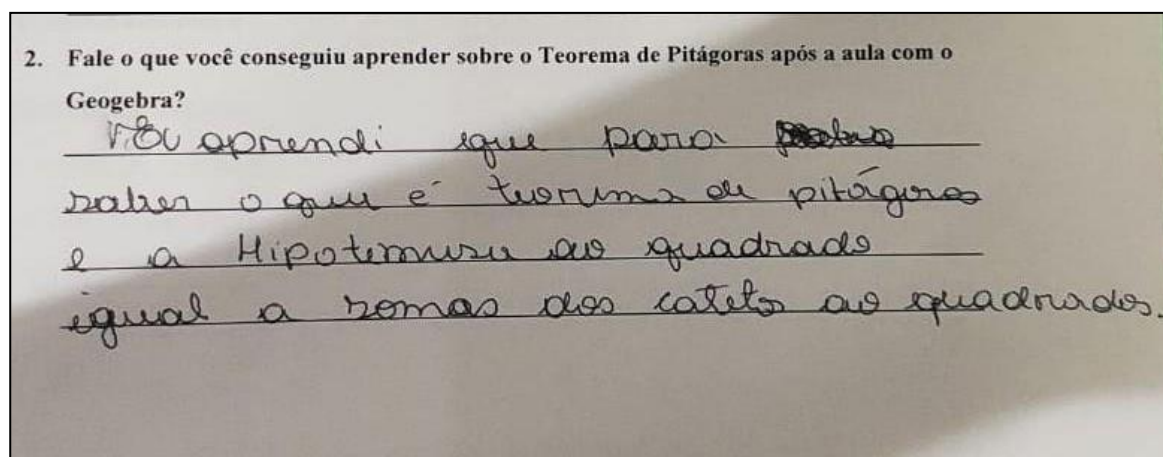 2. Fale o que você conseguiu aprender sobre o Teorema de Pitágoras após a aula com o
Geogebra?
Eu aprendi que para
saber o que é teorima de pitágoras
e a Hipotemusu ao quadrado
igual a somas dos catetos ao quadrados.